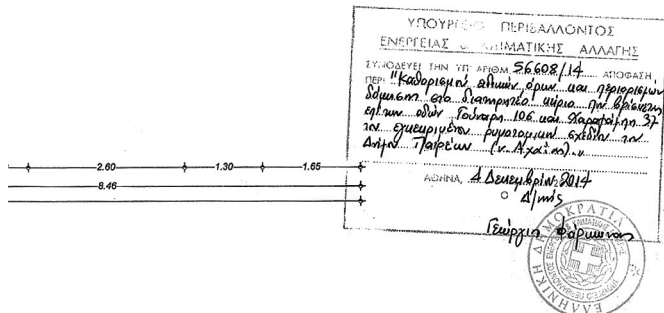 ΥΠΟΥΡΓΕΙΟ ΠΕΡΙΒΑΛΛΟΝΤΟΣ
ΕΝΕΡΓΕΙΑΣ & ΚΛΙΜΑΤΙΚΗΣ ΑΛΛΑΓΗΣ
ΣΥΝΟΔΕΥΕΙ ΤΗΝ ΥΠ' ΑΡΙΘΜ. 56608/14 ΑΠΟΦΑΣΗ,
ΠΕΡΙ "Καθορισμού ειδικών όρων και περιορισμών
δόμησης στο διατηρητέο κτίριο που βρίσκεται
επί των οδών Γούναρη 106 και Καραϊσκάκη 37
του εγκεκριμένου ρυμοτομικού σχεδίου του
Δήμου Πατρέων (ν. Αχαΐας)."
ΑΘΗΝΑ, 4 Δεκεμβρίου 2014
Ο Δ/ντής
Γεώργιος
2.60 1.30 1.65
8.46
ΕΛΛΗΝΙΚΗ ΔΗΜΟΚΡΑΤΙΑ